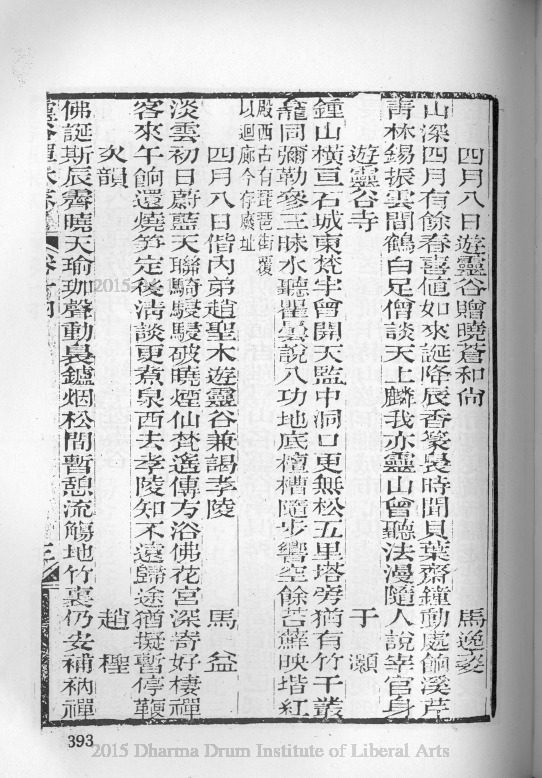 四月八日遊靈谷贈曉蒼和尚　馬逸姿
山深四月有餘春喜値如來誕降辰香篆裊時聞貝葉齋鐘動處餉溪芹
靑林錫振雲間鶴白足僧談天上麟我亦靈山會聽法漫隨人說宰官身
遊靈谷寺　于瀨
鍾山橫亘石城東梵宇曾開天監中洞口更無松五里塔旁猶有竹千叢
龕同彌勒參三昧水聽瞿曇說八功地底檀槽隨步響空餘苔蘚映堦紅
殿西古有琵琶街覆
以迴廊今存廢址
四月八日偕內弟趙聖木遊靈谷兼謁孝陵　馬益
淡雲初日蔚藍天聯騎駸駸破曉煙仙梵遙傳方浴佛花宮深寄好棲禪
客來午餉還燒笋定後淸談更煮泉西去孝陵知不遠歸途猶擬暫停鞭
次韻　趙檉
佛誕斯辰霽曉天瑜珈聲動裊鑪烟松間暫憩流觴地竹裏仍安補衲禪
393
2015 Dharma Drum Institute of Liberal Arts